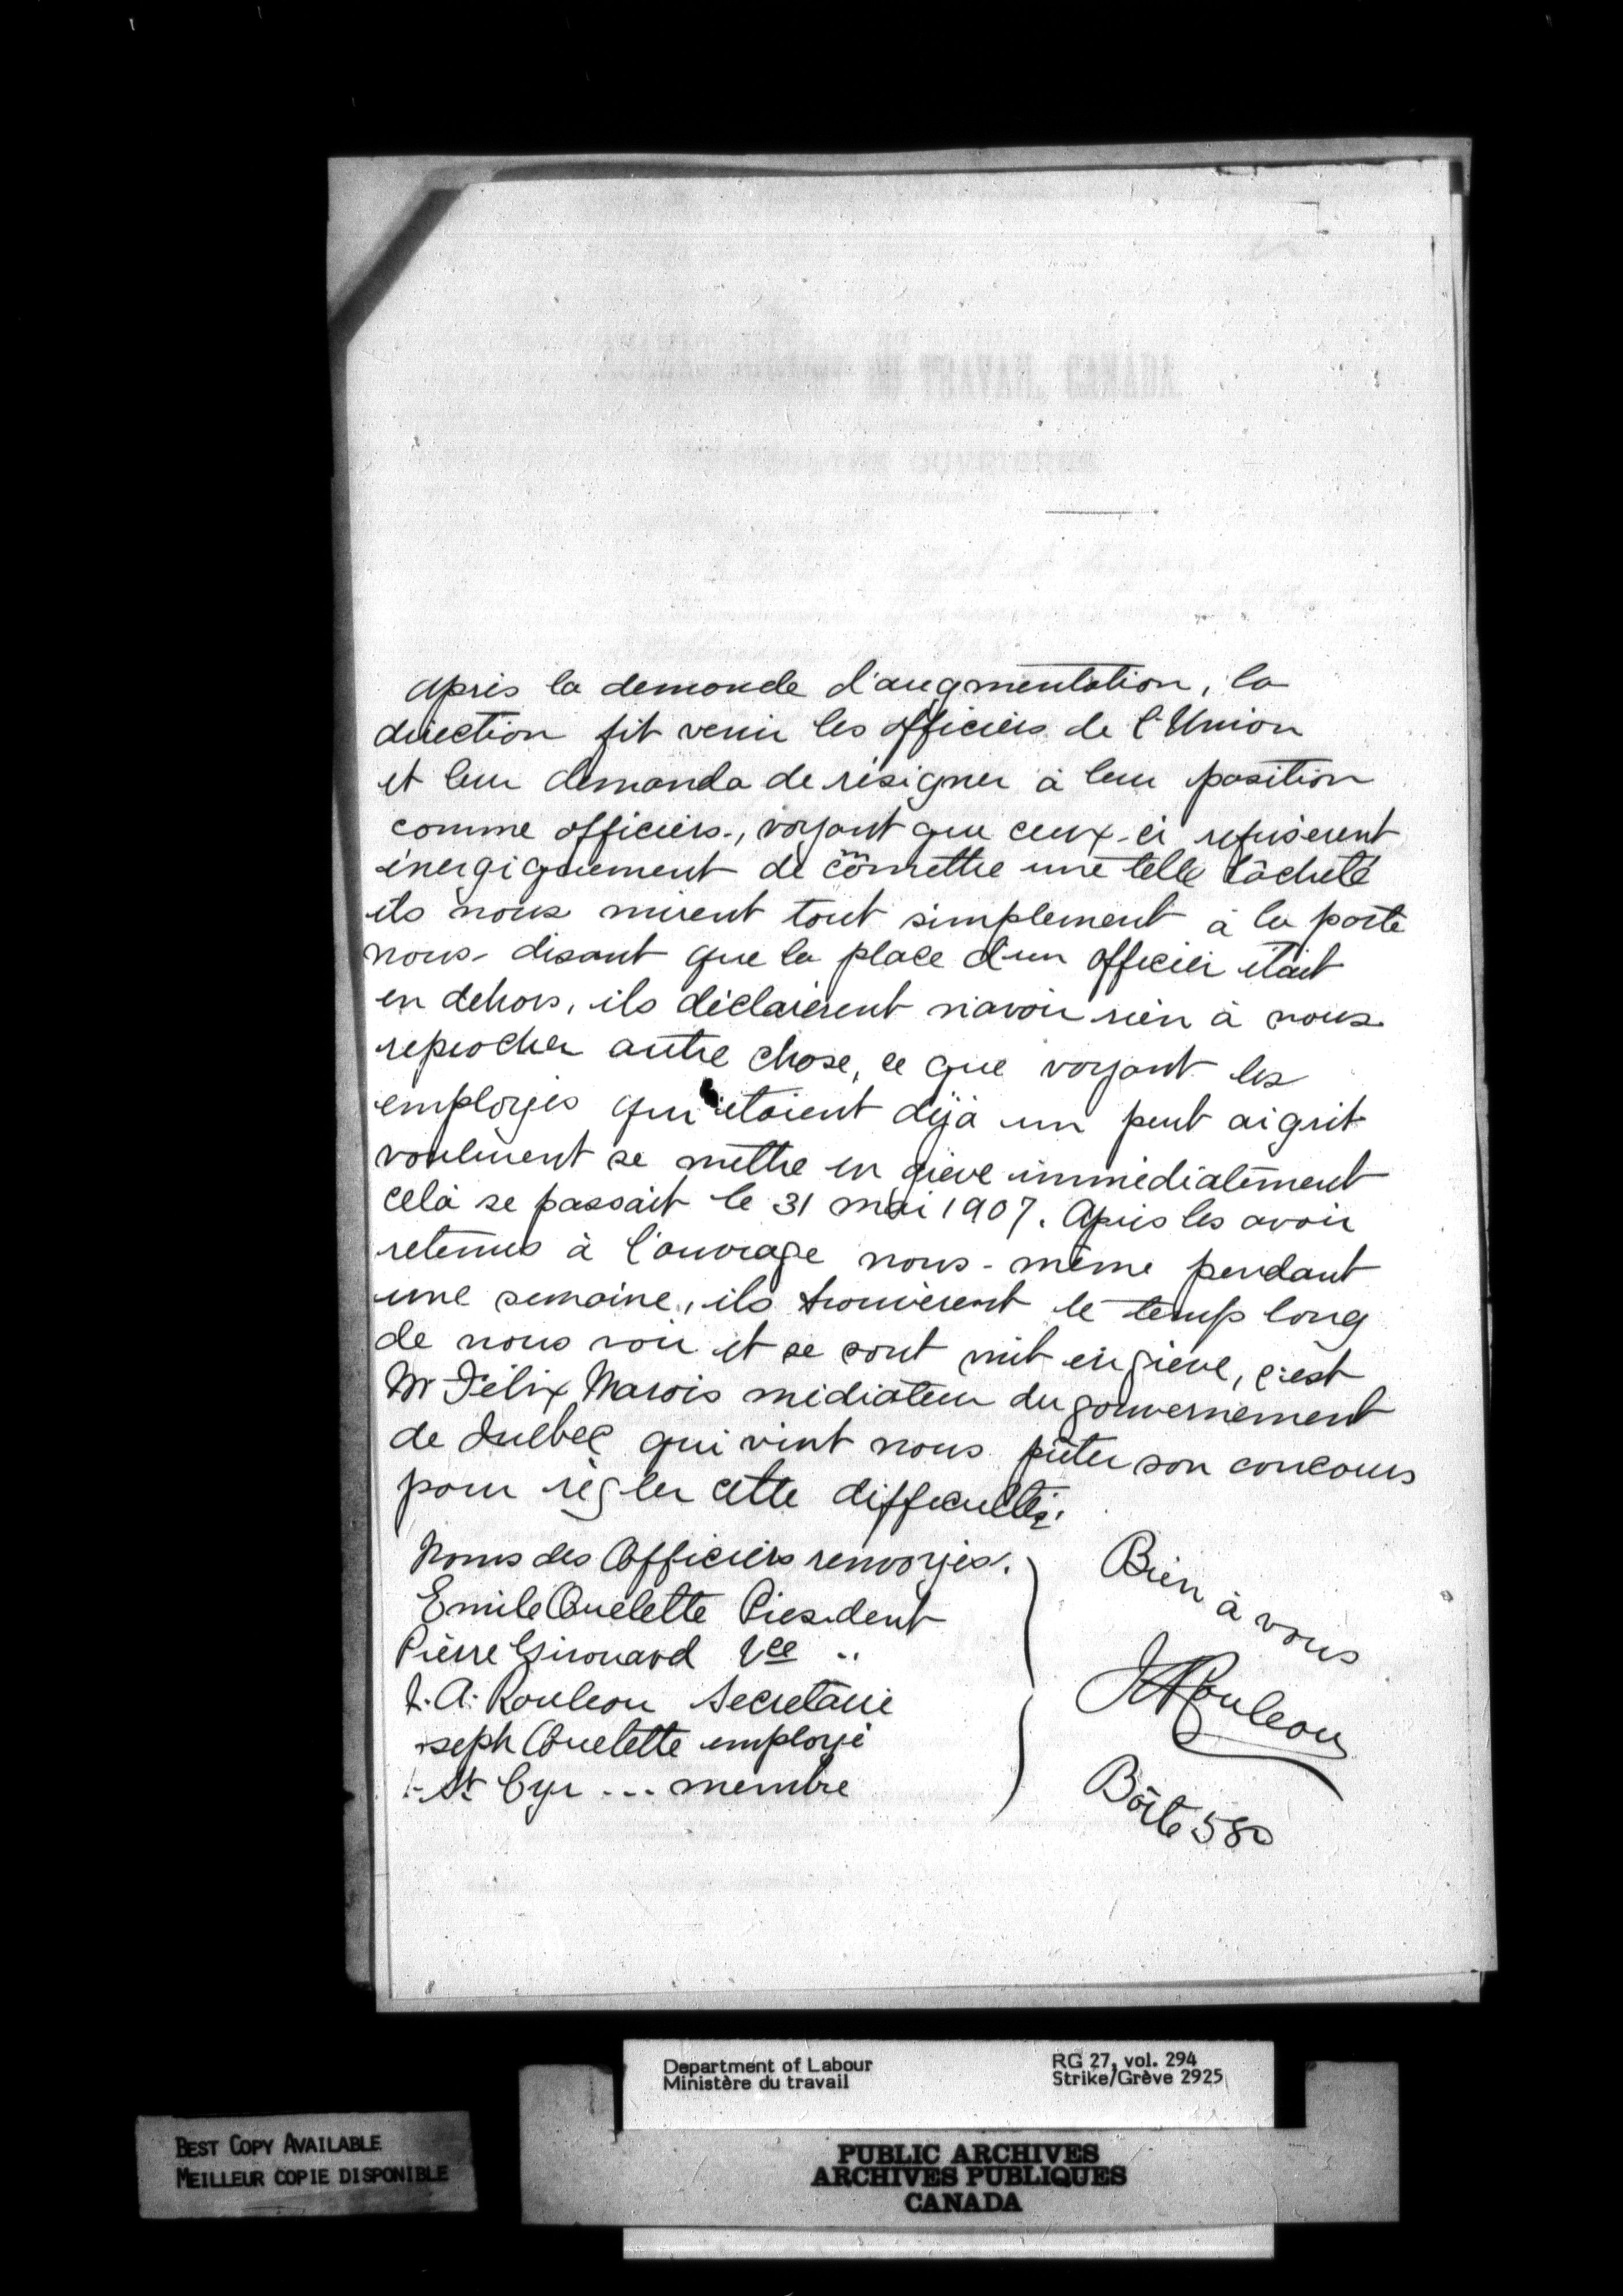 après la demande d'augmentation, la
direction fit venir les officiers de l'Union
et leur demanda de résigner à leur position
comme officiers, voyant que ceux-ci refusèrent
énergiquement de comettre une telle lâcheté
ils nous mirent tout simplement à la porte
nous disant que la place d'un officier était
en dehors, ils déclarèrent n'avoir rien à nous
reprocher autre chose, ce que voyant les
employés qui étaient déjà un peut aigrit
voulurent se mettre en grève immédiatement
celà se passait le 31 mai 1907. Après les avoir
retenus à l'ouvrage nous-même pendant
une semaine, ils trouvèrent le temps long
de nous voir et se sont mit en grève, c'est
Mr Félix Marois médiateur du gouvernement
de Québec qui vint nous prêter son concours
pour régler cette difficultée.
Noms des Officiers renvoyés.
Emile Ouelette Président
Pierre Girouard Vce ..
J. A. Rouleau Secrétaire
oseph Ouelette employé
St Cyr ... membre
Bien à vous
JARouleau
Bôite 580
DU TRAVAIL, CANADA
OUVRIERES
Department of Labour
Ministère du travail
RG 27, vol. 294
Strike/Grève 2925
BEST COPY AVAILABLE
MEILLEUR COPIE DISPONIBLE
PUBLIC ARCHIVES
ARCHIVES PUBLIQUES
CANADA